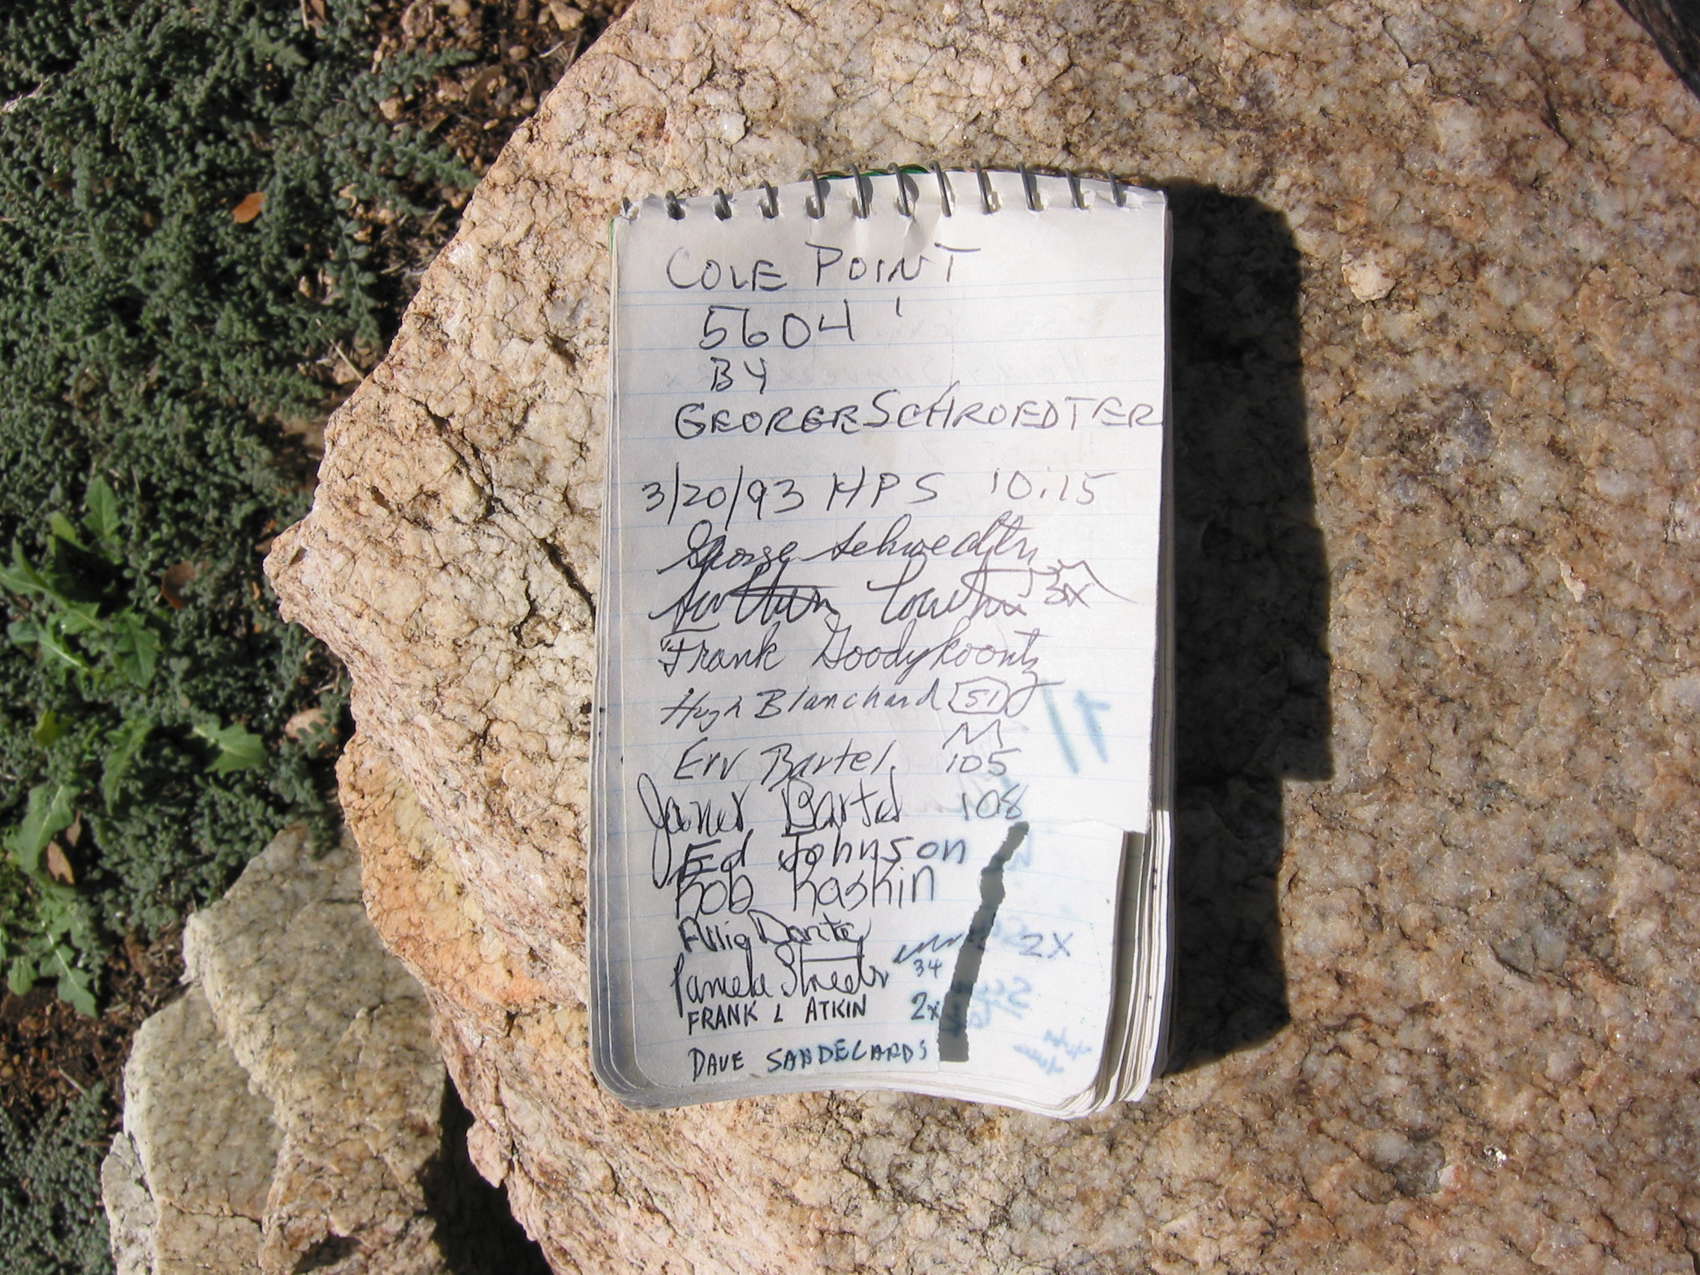 COLE POINT
5604'
BY
GEORGE SCHROEDTER
3/20/93 HPS 10:15
George Schroedter
3X
Frank Goodykoontz
Hugh Blanchard 51
M
Erv Bartel 105
Janet Bartel 108
Ed Johnson
Bob
Dante 2X
Pamela 34
FRANK L ATKIN 2x
DAVE